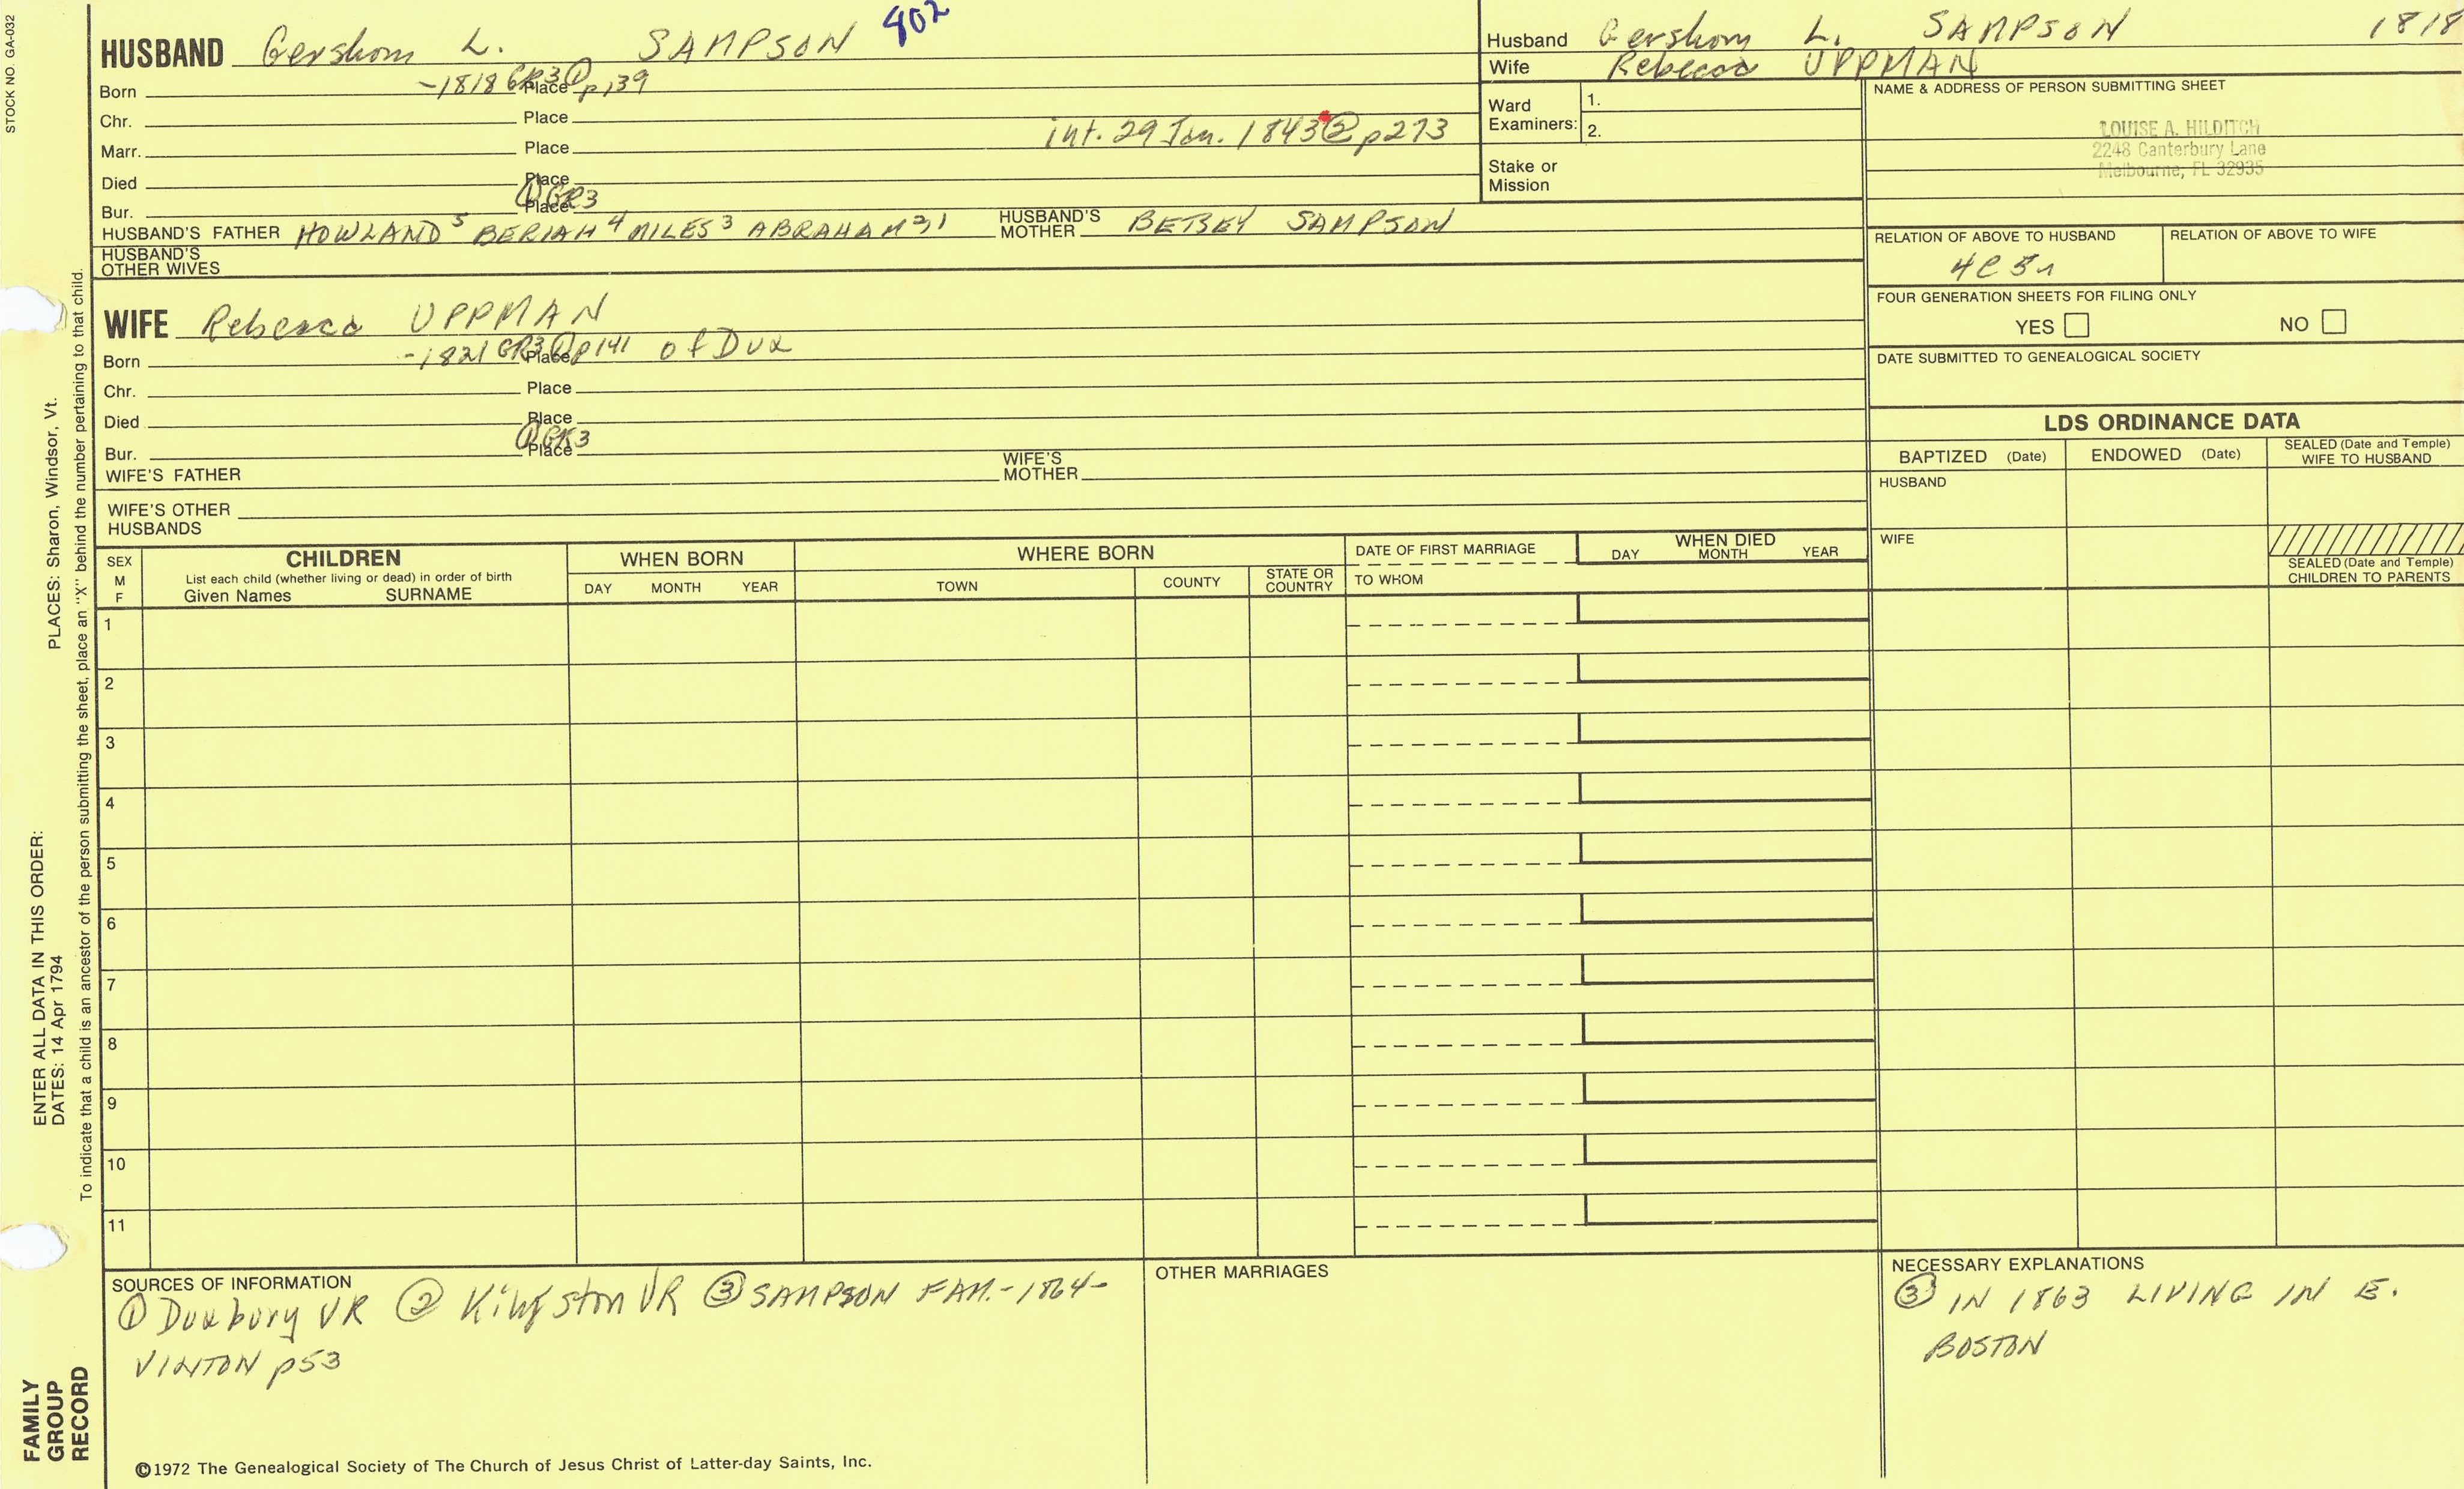 STOCK NO. GA-032
HUSBAND Gershom L. SAMPSON 802
Born -1818 GR3 ① p139 Place
Chr. Place
Marr. Place int. 29 Jan. 1843 ② p273
Died Place
Bur. Place ① GR3
HUSBAND'S FATHER HOWLAND⁵ BERIAH⁴ MILES³ ABRAHAM²¹ HUSBAND'S MOTHER BETSEY SAMPSON
HUSBAND'S OTHER WIVES
WIFE Rebecca UPPMAN
Born -1821 GR3 ① p141 Place of Dux
Chr. Place
Died Place
Bur. Place ① GR3
WIFE'S FATHER WIFE'S MOTHER
WIFE'S OTHER HUSBANDS
Husband Gershom L. SAMPSON 1818
Wife Rebecca UPPMAN
Ward Examiners: 1.
2.
Stake or Mission
NAME & ADDRESS OF PERSON SUBMITTING SHEET
LOUISE A. HILDITCH
2248 Canterbury Lane
Melbourne, FL 32935
RELATION OF ABOVE TO HUSBAND RELATION OF ABOVE TO WIFE
4C 5r
FOUR GENERATION SHEETS FOR FILING ONLY
YES NO
DATE SUBMITTED TO GENEALOGICAL SOCIETY
LDS ORDINANCE DATA
BAPTIZED (Date) ENDOWED (Date) SEALED (Date and Temple) WIFE TO HUSBAND
HUSBAND
WIFE
SEALED (Date and Temple) CHILDREN TO PARENTS
SEX M F
CHILDREN
List each child (whether living or dead) in order of birth
Given Names SURNAME
WHEN BORN
DAY MONTH YEAR
WHERE BORN
TOWN COUNTY STATE OR COUNTRY
DATE OF FIRST MARRIAGE
TO WHOM
WHEN DIED
DAY MONTH YEAR
1
2
3
4
5
6
7
8
9
10
11
SOURCES OF INFORMATION
① Duxbury VR ② Kingston VR ③ SAMPSON FAM.-1864-
VINTON p53
OTHER MARRIAGES
NECESSARY EXPLANATIONS
③ IN 1863 LIVING IN E.
BOSTON
©1972 The Genealogical Society of The Church of Jesus Christ of Latter-day Saints, Inc.
FAMILY
GROUP
RECORD
ENTER ALL DATA IN THIS ORDER:
DATES: 14 Apr 1794 PLACES: Sharon, Windsor, Vt.
To indicate that a child is an ancestor of the person submitting the sheet, place an "X" behind the number pertaining to that child.